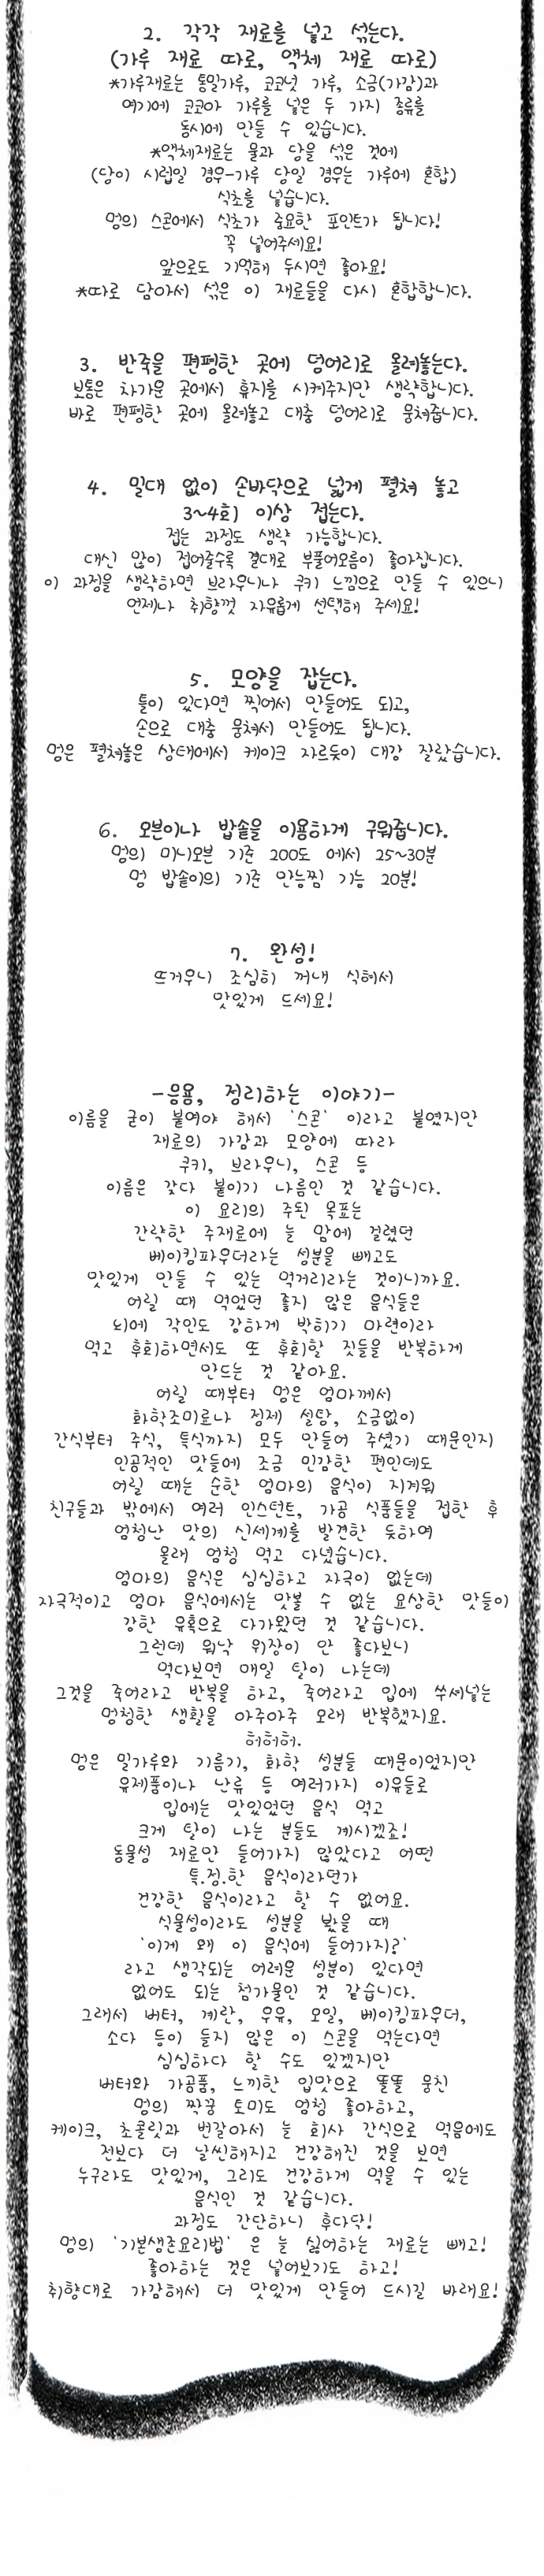 2. 각각 재료를 넣고 섞는다.
(가루 재료 따로, 액체 재료 따로)
*가루재료는 통밀가루, 코코넛 가루, 소금(가감)과
여기에 코코아 가루를 넣은 두 가지 종류를
동시에 만들 수 있습니다.
*액체재료는 물과 당을 섞은 것에
(당이 시럽일 경우-가루 당일 경우는 가루에 혼합)
식초를 넣습니다.
멍의 스콘에서 식초가 중요한 포인트가 됩니다!
꼭 넣어주세요!
앞으로도 기억해 두시면 좋아요!
*따로 담아서 섞은 이 재료들을 다시 혼합합니다.
3. 반죽을 편평한 곳에 덩어리로 올려놓는다.
보통은 차가운 곳에서 휴지를 시켜주지만 생략합니다.
바로 편평한 곳에 올려놓고 대충 덩어리로 뭉쳐줍니다.
4. 밀대 없이 손바닥으로 넓게 펼쳐 놓고
3~4회 이상 접는다.
접는 과정도 생략 가능합니다.
대신 많이 접어줄수록 결대로 부풀어오름이 좋아집니다.
이 과정을 생략하면 브라우니나 쿠키 느낌으로 만들 수 있으니
언제나 취향껏 자유롭게 선택해 주세요!
5. 모양을 잡는다.
틀이 있다면 찍어서 만들어도 되고,
손으로 대충 뭉쳐서 만들어도 됩니다.
멍은 펼쳐놓은 상태에서 케이크 자르듯이 대강 잘랐습니다.
6. 오븐이나 밥솥을 이용하게 구워줍니다.
멍의 미니오븐 기준 200도 에서 25~30분
멍 밥솥이의 기준 만능찜 기능 20분!
7. 완성!
뜨거우니 조심히 꺼내 식혀서
맛있게 드세요!
-응용, 정리하는 이야기-
이름을 굳이 붙여야 해서 '스콘' 이라고 붙였지만
재료의 가감과 모양에 따라
쿠키, 브라우니, 스콘 등
이름은 갖다 붙이기 나름인 것 같습니다.
이 요리의 주된 목표는
간략한 주재료에 늘 맘에 걸렸던
베이킹파우더라는 성분을 빼고도
맛있게 만들 수 있는 먹거리라는 것이니까요.
어릴 때 먹었던 좋지 않은 음식들은
뇌에 각인도 강하게 박히기 마련이라
먹고 후회하면서도 또 후회할 짓들을 반복하게
만드는 것 같아요.
어릴 때부터 멍은 엄마께서
화학조미료나 정제 설탕, 소금없이
간식부터 주식, 특식까지 모두 만들어 주셨기 때문인지
인공적인 맛들에 조금 민감한 편인데도
어릴 때는 순한 엄마의 음식이 지겨워
친구들과 밖에서 여러 인스턴트, 가공 식품들을 접한 후
엄청난 맛의 신세계를 발견한 듯하여
몰래 엄청 먹고 다녔습니다.
엄마의 음식은 심심하고 자극이 없는데
자극적이고 엄마 음식에서는 맛볼 수 없는 요상한 맛들이
강한 유혹으로 다가왔던 것 같습니다.
그런데 워낙 위장이 안 좋다보니
먹다보면 매일 탈이 나는데
그것을 죽어라고 반복을 하고, 죽어라고 입에 쑤셔넣는
멍청한 생활을 아주아주 오래 반복했지요.
허허허.
멍은 밀가루와 기름기, 화학 성분들 때문이었지만
유제품이나 난류 등 여러가지 이유들로
입에는 맛있었던 음식 먹고
크게 탈이 나는 분들도 계시겠죠!
동물성 재료만 들어가지 않았다고 어떤
특.정.한 음식이라던가
건강한 음식이라고 할 수 없어요.
식물성이라도 성분을 봤을 때
'이게 왜 이 음식에 들어가지?'
라고 생각되는 어려운 성분이 있다면
없어도 되는 첨가물인 것 같습니다.
그래서 버터, 계란, 우유, 오일, 베이킹파우더,
소다 등이 들지 않은 이 스콘을 먹는다면
심심하다 할 수도 있겠지만
버터와 가공품, 느끼한 입맛으로 똘똘 뭉친
멍의 짝꿍 토미도 엄청 좋아하고,
케이크, 초콜릿과 번갈아서 늘 회사 간식으로 먹음에도
전보다 더 날씬해지고 건강해진 것을 보면
누구라도 맛있게, 그리도 건강하게 먹을 수 있는
음식인 것 같습니다.
과정도 간단하니 후다닥!
멍의 '기본생존요리법' 은 늘 싫어하는 재료는 빼고!
좋아하는 것은 넣어보기도 하고!
취향대로 가감해서 더 맛있게 만들어 드시길 바래요!